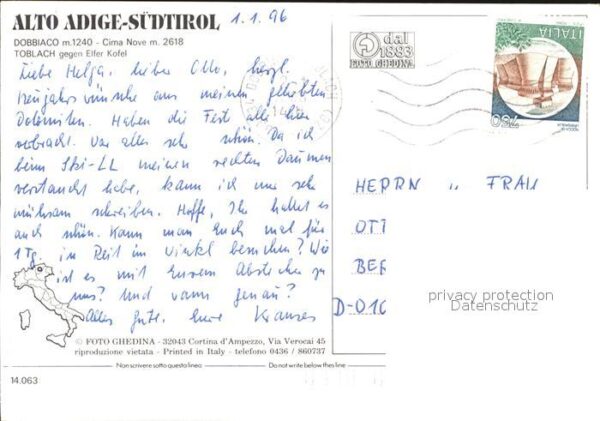 ALTO ADIGE-SÜDTIROL 1.1.96
DOBBIACO m.1240 - Cima Nove m. 2618
TOBLACH gegen Elfer Kofel
Liebe Helga, lieber Otto, herzl.
Neujahrswünsche aus meinen geliebten
Dolomiten. Haben die Fest alle hier
verbracht. War alles sehr schön. Da ich
beim Ski-LL meinen rechten Daumen
verstaucht habe, kann ich nur sehr
mühsam schreiben. Hoffe, Ihr hattet es
auch schön. Kann man Euch mal für
1 Tg. in Reit im Winkl besuchen? Wie
ist es mit Eurem Abstecher zu
uns? Und wann genau?
Alles Gute. Eure
© FOTO GHEDINA - 32043 Cortina d'Ampezzo, Via Verocai 45
riproduzione vietata - Printed in Italy - telefono 0436 / 860737
Non scrivere sotto questa linea Do not write below this line
14.063
dal
1883
FOTO GHEDINA
ITALIA
750
HERRN u FRAU
OTT
BER
D-010
privacy protection
Datenschutz